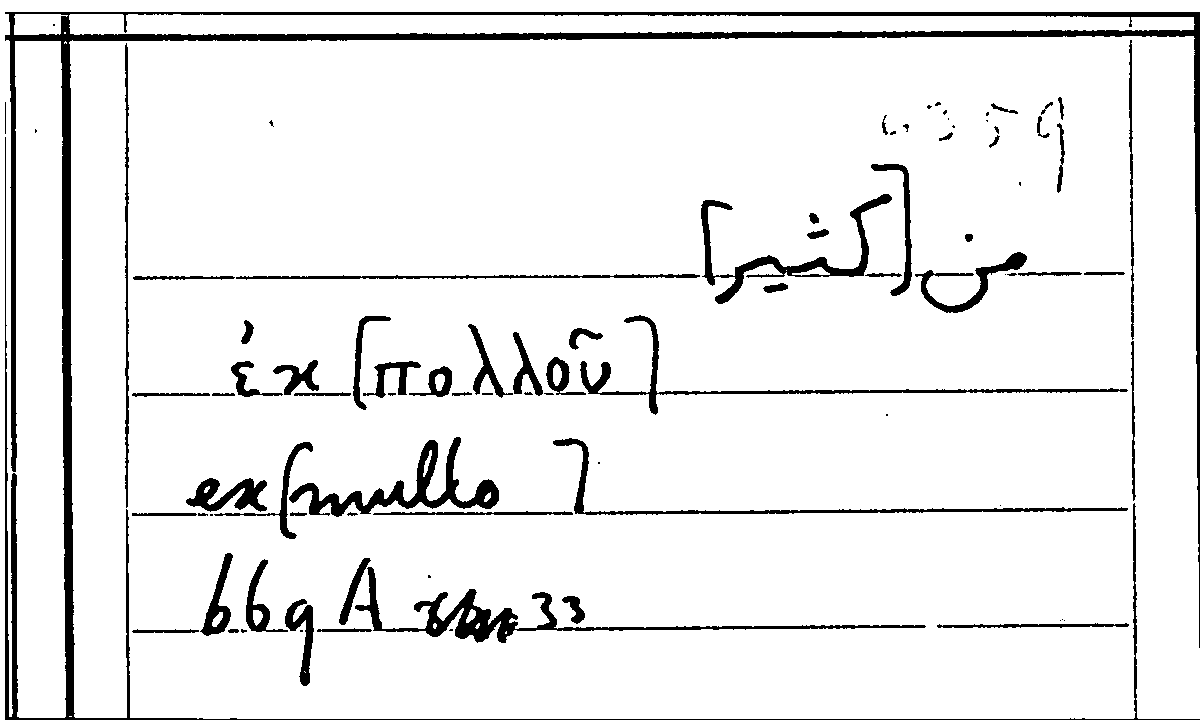 من [كثير]
ἐκ [πολλοῦ]
ex [multo]
669 A 33